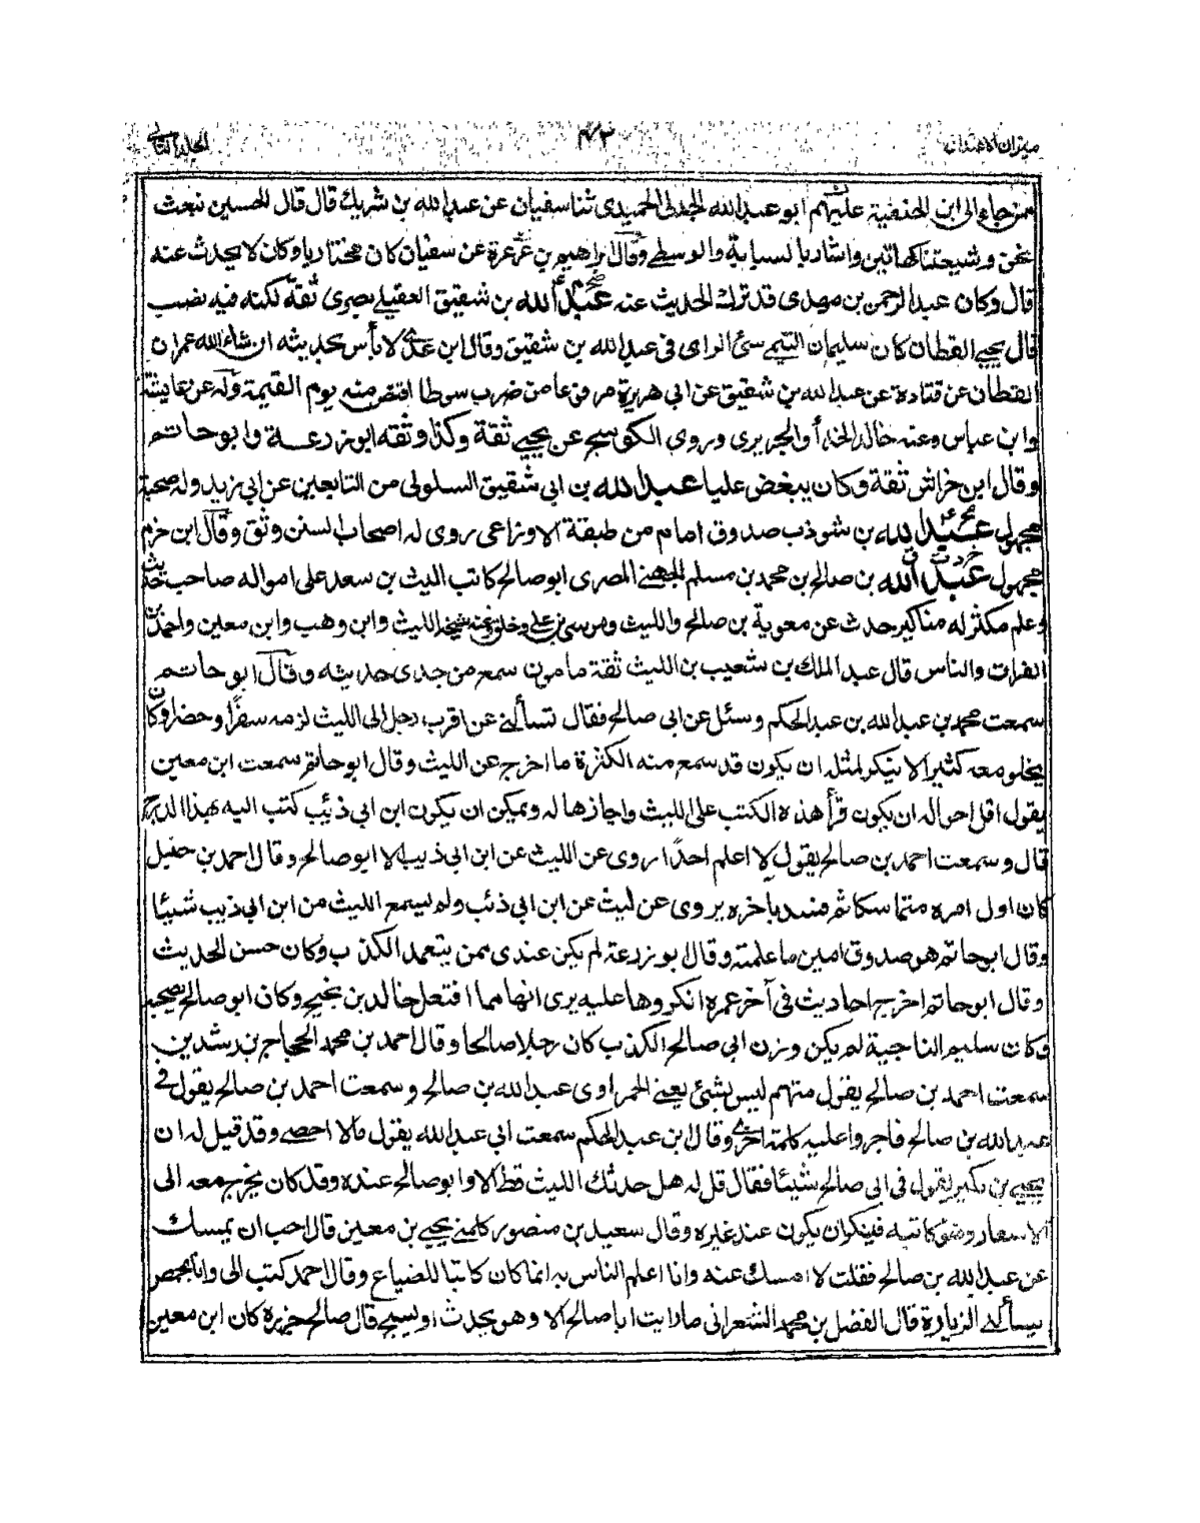 ميزان الاعتدال ٤٣ المجلد الثاني
ممن جاء الى ابن الحنفية عليهم ابو عبد الله الجدلى الحميدى ثنا سفيان عن عبد الله بن شريك قال قال الحسين نبعث
نحن وشيعتنا كهاتين واشار بالسبابة والوسطى وقال ابراهيم بن عرعرة عن سفيان كان مختاريا وكان لا يحدث عنه
قال وكان عبد الرحمن بن مهدى قد ترك الحديث عنه عبد الله بن شقيق العقيلى بصرى ثقة لكنه فيه نصب
قال يحيى القطان كان سليمان التيمى سئ الراى فى عبد الله بن شقيق وقال ابن عدى لا بأس بحديثه ان شاء الله عمران
القطان عن قتادة عن عبد الله بن شقيق عن ابى هريرة مرفوعا من ضرب سوطا اقتص منه يوم القيمة وله عن عايشة
وابن عباس وعنه خالد الحذاء والجريرى وروى الكوسج عن يحيى ثقة وكذا وثقه ابو زرعة وابو حاتم
وقال ابن خراش ثقة وكان يبغض عليا عبد الله بن ابى شقيق السلولى من التابعين عن ابى زيد وله صحبة
مجهول عبد الله بن شوذب صدوق امام من طبقة الاوزاعى روى له اصحاب السنن وثق وقال ابن حزم
مجهول عبد الله بن صالح بن محمد بن مسلم الجهنى المصرى ابو صالح كاتب الليث بن سعد على امواله صاحب حديث
وعلم مكثر له مناكير حدث عن معوية بن صالح والليث وموسى بن على وخلق وعنه شيخه الليث وابن وهب وابن معين واحمد بن
الفرات والناس قال عبد الملك بن شعيب بن الليث ثقة مامون سمع من جدى حديثه وقال ابو حاتم
سمعت محمد بن عبد الله بن عبد الحكم وسئل عن ابى صالح فقال تسألنى عن اقرب رجل الى الليث لزمه سفرا وحضرا وكان
يخلو معه كثيرا لا ينكر لمثله ان يكون قد سمع منه الكثرة ما اخرج عن الليث وقال ابو حاتم سمعت ابن معين
يقول اقل احواله ان يكون قرأ هذه الكتب على الليث واجازها له ويمكن ان يكون ابن ابى ذئب كتب اليه بهذا الدرج
قال وسمعت احمد بن صالح يقول لا اعلم احدا روى عن الليث عن ابن ابى ذيب الا ابو صالح وقال احمد بن حنبل
كان اول امره متماسكا ثم فسد باخره يروى عن ليث عن ابن ابى ذئب ولم يسمع الليث من ابن ابى ذيب شيئا
وقال ابو حاتم هو صدوق امين ما علمته وقال ابو زرعة لم يكن عندى ممن يتعمد الكذب وكان حسن الحديث
وقال ابو حاتم اخرج احاديث فى آخر عمره انكروها عليه يرى انها مما افتعل خالد بن نجيح وكان ابو صالح يصحبه
وكان سليم الناحية لم يكن وزن ابى صالح الكذب كان رجلا صالحا وقال احمد بن محمد الحجاج بن رشدين
سمعت احمد بن صالح يقول متهم ليس بشئ يعنى الحمراوى عبد الله بن صالح وسمعت احمد بن صالح يقول فى
عبد الله بن صالح فاجروا عليه كلمة اخرى وقال ابن عبد الحكم سمعت ابى عبد الله يقول مالا احصى وقد قيل له ان
يحيى بن بكير يقول فى ابى صالح شيئا فقال قل له هل حدثك الليث قط الا وابو صالح عنده وقد كان يخرج معه الى
الاسفار وهو كاتبه فينكر ان يكون عند غيره وقال سعيد بن منصور كلمنى يحيى بن معين قال احب ان يمسك
عن عبد الله بن صالح فقلت لا امسك عنه وانا اعلم الناس به انما كان كاتبا للضياع وقال احمد كتب الى وانا بحمص
يسألنى الزيارة قال الفضل بن محمد الشعرانى ما رايت ابا صالح الا وهو يحدث او يسبح قال صالح جزرة كان ابن معين